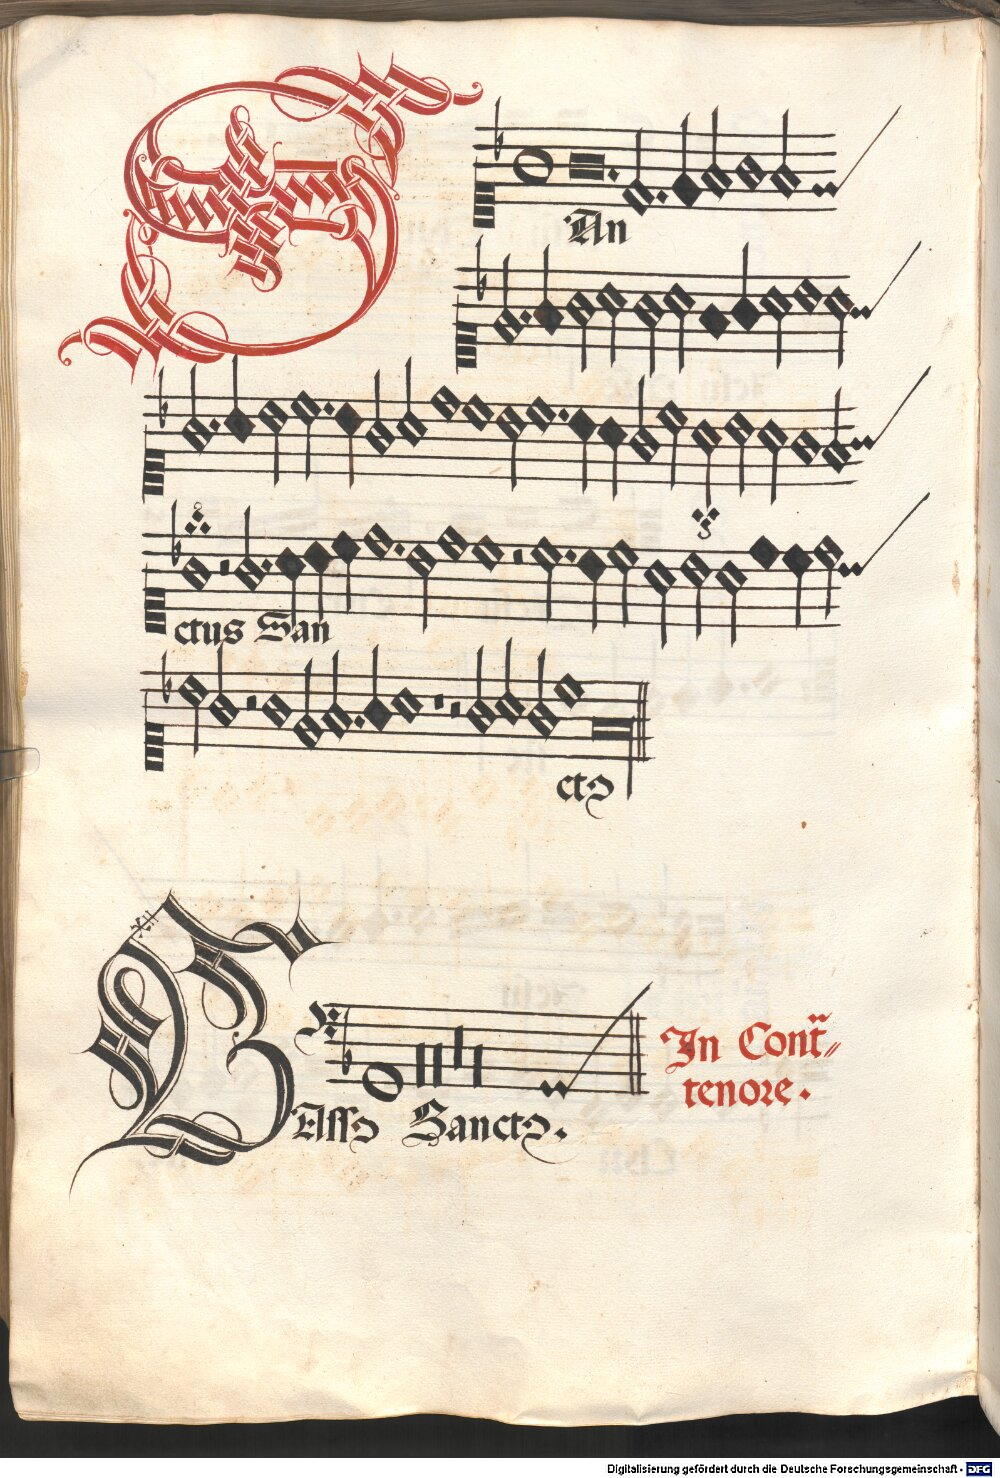 San
ctus San
ctꝰ
Bassꝰ Sanctꝰ.
In Cont̃⸗
tenore.
Digitalisierung gefördert durch die Deutsche Forschungsgemeinschaft - DFG